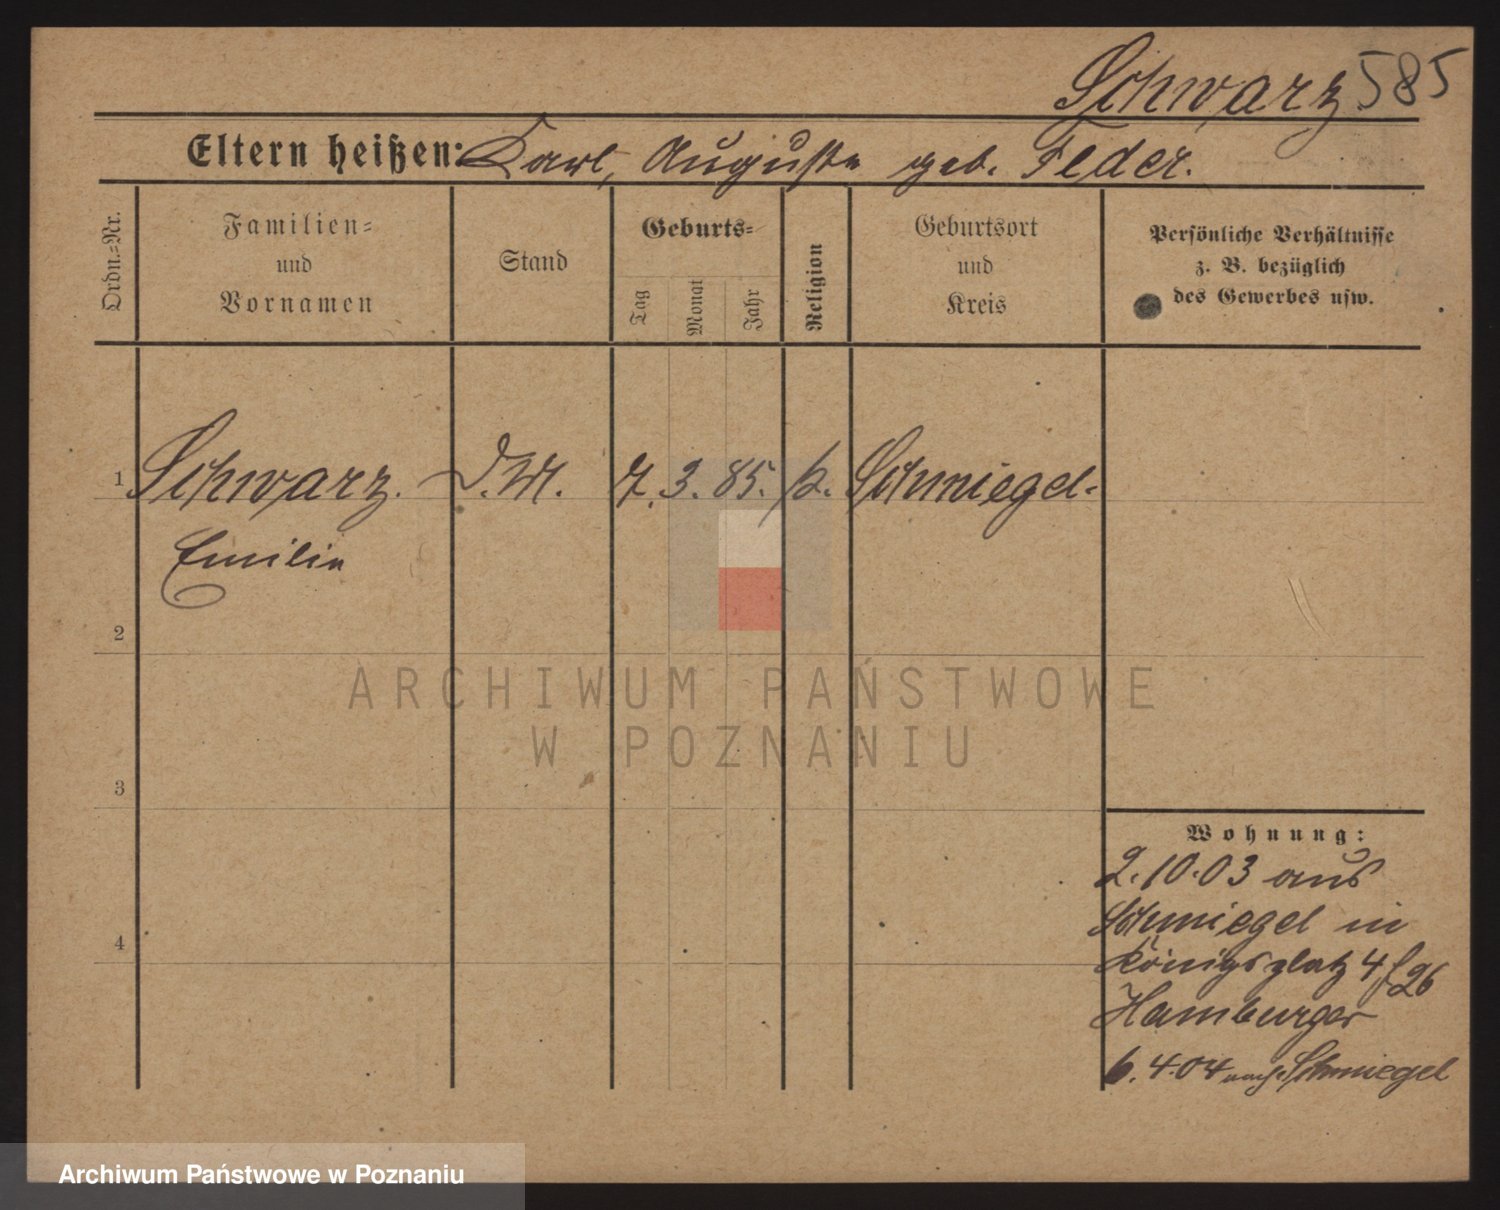 Schwarz 585
Eltern heißen: Karl, Auguste geb. Feder.
Ordn.-Nr.
Familien-
und
Vornamen
Stand
Geburts-
Tag
Monat
Jahr
Religion
Geburtsort
und
Kreis
Persönliche Verhältnisse
z. B. bezüglich
des Gewerbes usw.
1 Schwarz. D. M. 7. 3. 85. k. Schmiegel.
Emilie
2
3
4
Wohnung:
2.10.03 aus
Schmiegel in
Königsplatz 4
Hamburger
6.4.04 nach Schmiegel
ARCHIWUM PAŃSTWOWE
W POZNANIU
Archiwum Państwowe w Poznaniu